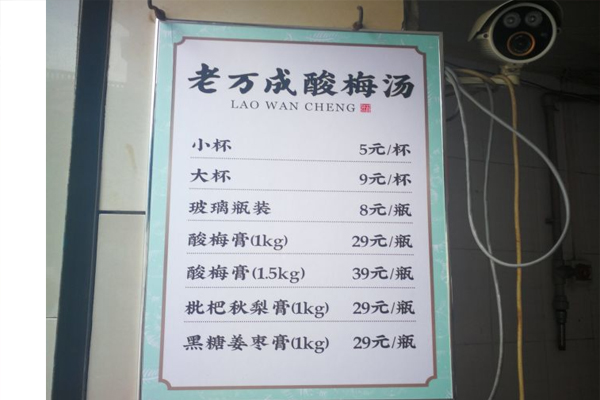 老万成酸梅汤
LAO WAN CHENG
小杯 5元/杯
大杯 9元/杯
玻璃瓶装 8元/瓶
酸梅膏(1kg) 29元/瓶
酸梅膏(1.5kg) 39元/瓶
枇杷秋梨膏(1kg) 29元/瓶
黑糖姜枣膏(1kg) 29元/瓶